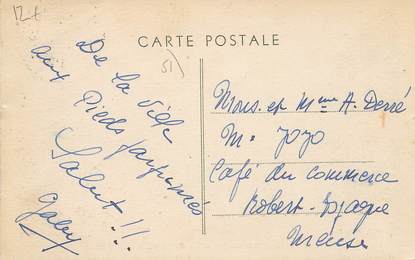 12+
CARTE POSTALE
51
De la Ville
aux Pieds parfumés
Salut !!
Gaby
Mons. et Mme A. Derré
M. Jojo
Café du Commerce
Robert-Espagne
Meuse